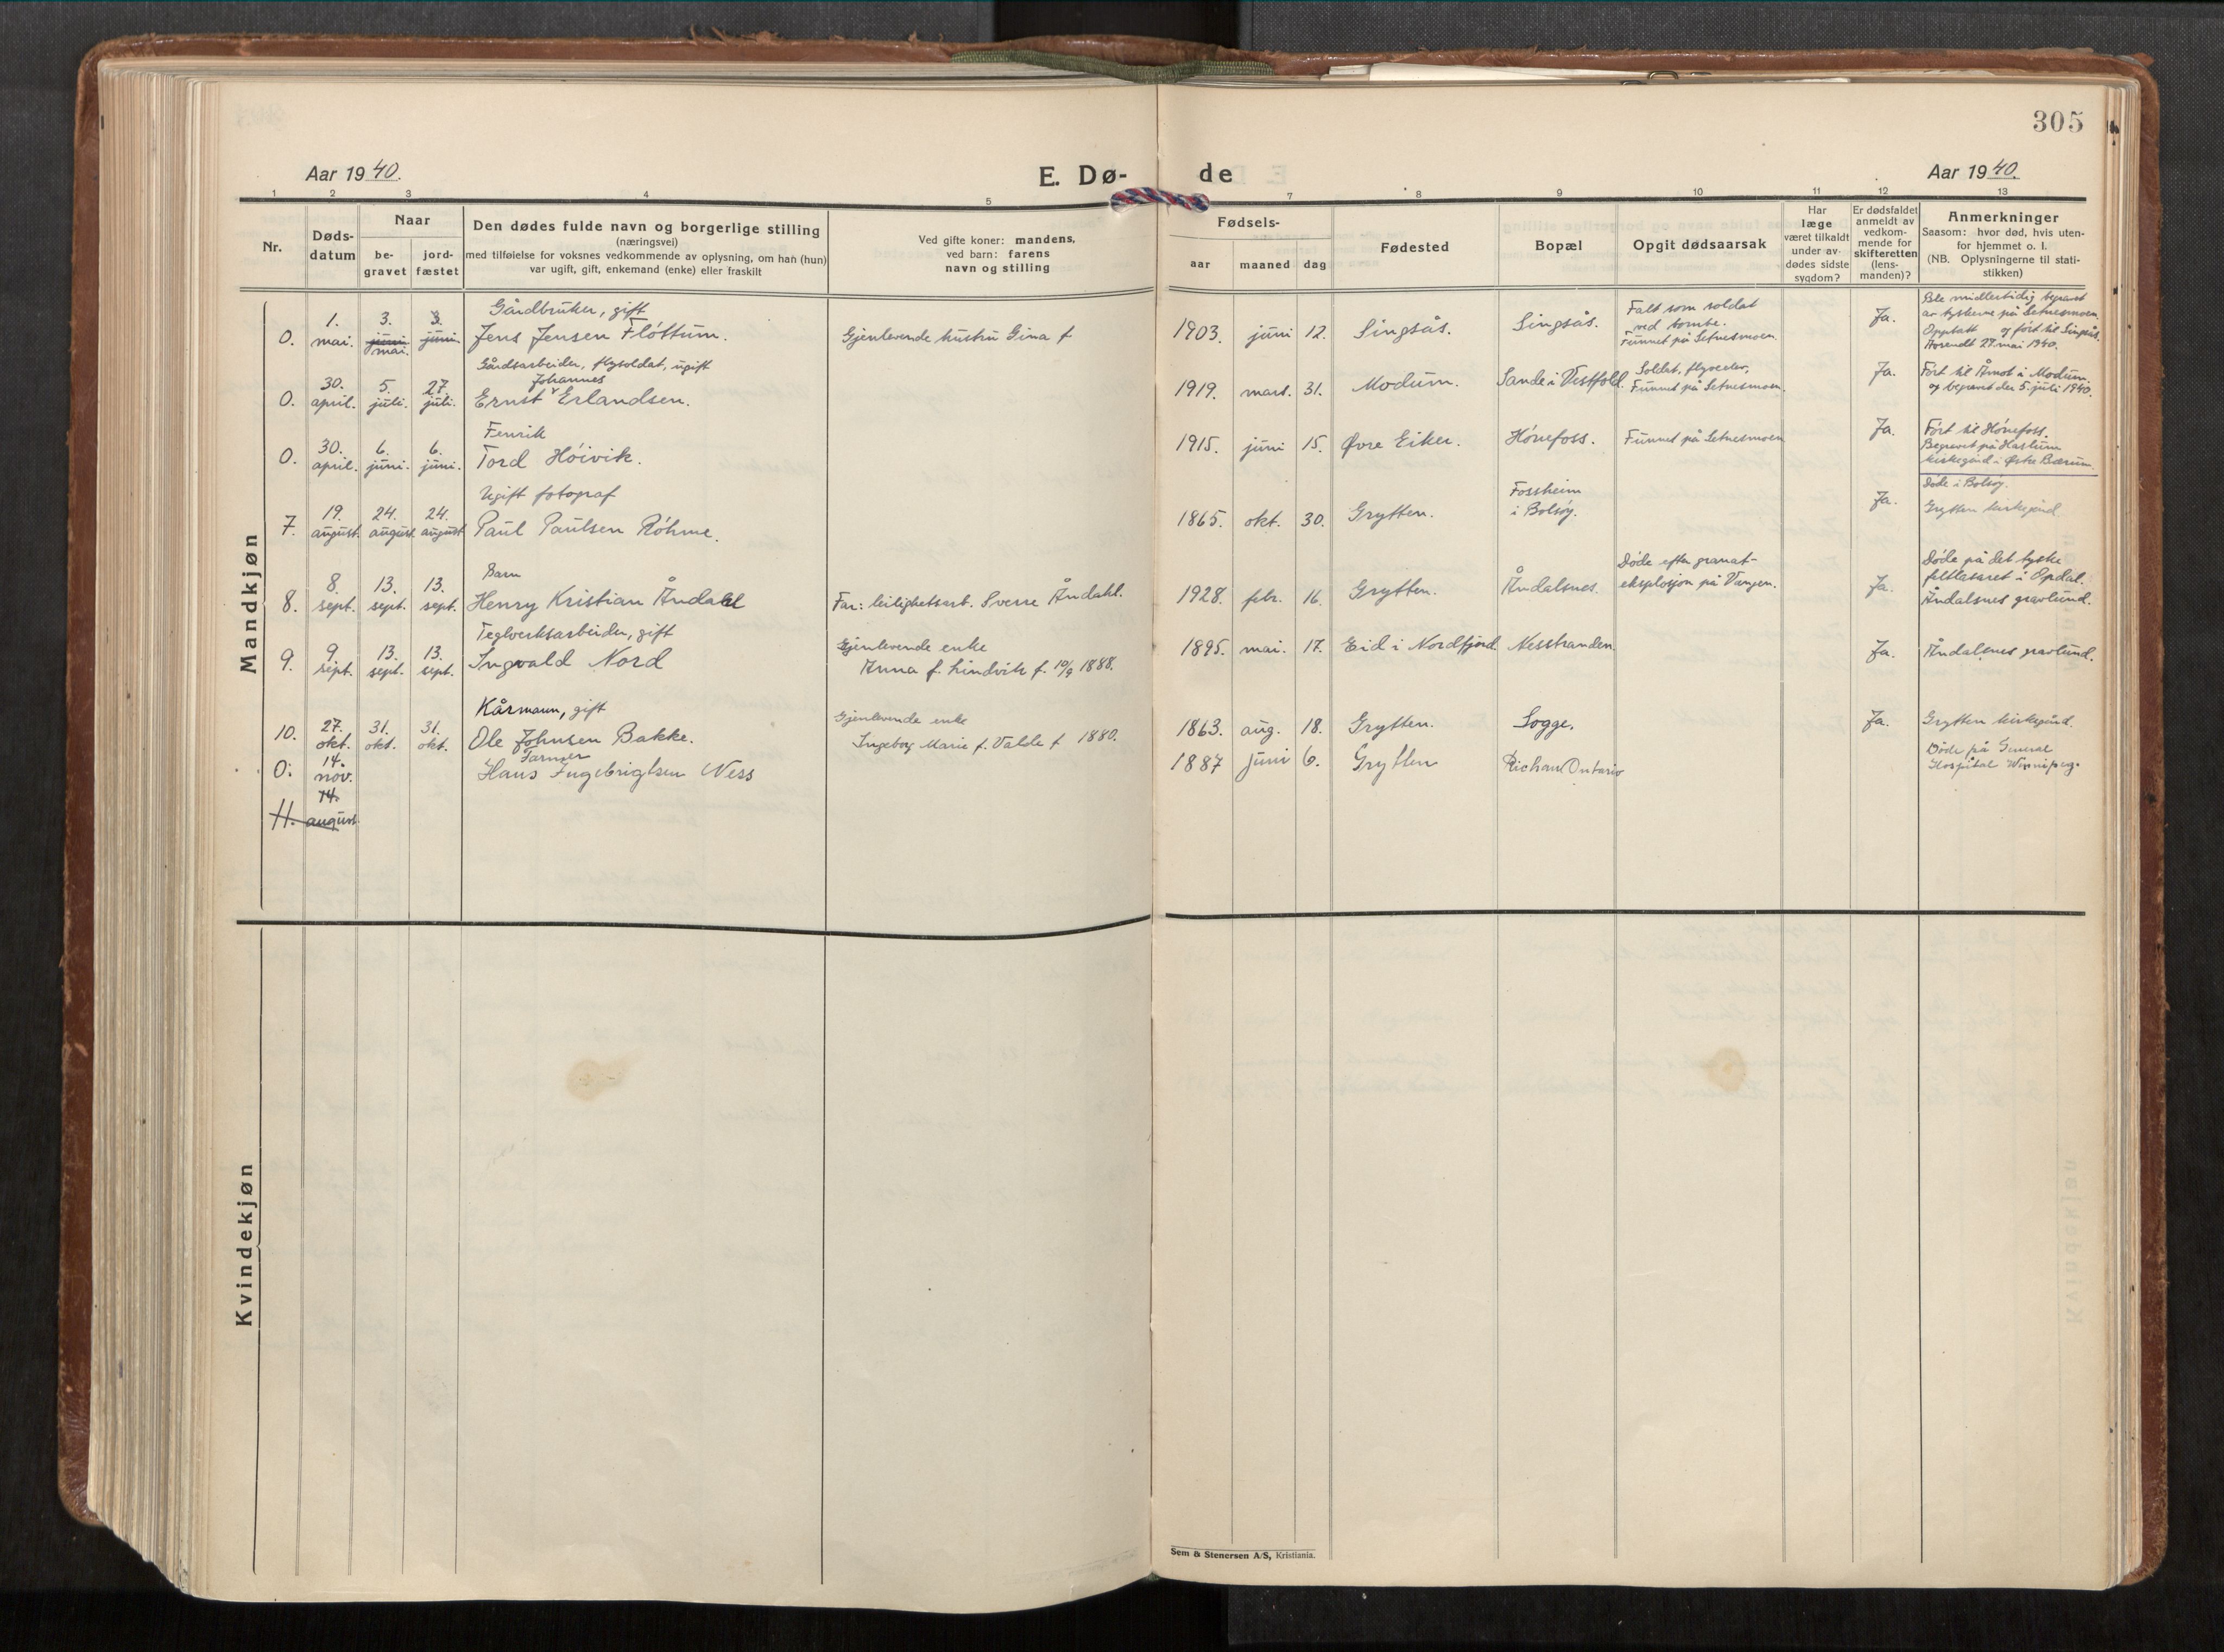 305
Aar 1940.
E. Dø-
de
Aar 1940.
1 2 3 4 5 7 8 9 10 11 12 13
Nr.
Døds-
datum
Naar
be-
gravet
jord-
fæstet
Den dødes fulde navn og borgerlige stilling
(næringsvei)
med tilføielse for voksnes vedkommende av oplysning, om han (hun)
var ugift, gift, enkemand (enke) eller fraskilt
Ved gifte koner: mandens,
ved barn: farens
navn og stilling
Fødsels-
aar
maaned
dag
Fødested
Bopæl
Opgit dødsaarsak
Har
læge
været tilkaldt
under av-
dødes sidste
sygdom?
Er dødsfaldet
anmeldt av
vedkom-
mende for
skifteretten
(lens-
manden)?
Anmerkninger
Saasom: hvor død, hvis uten-
for hjemmet o. l.
(NB. Oplysningerne til stati-
stikken)
Mandkjøn
0.
1.
mai.
3.
juni
mai.
3.
juni.
Gårdbruker, gift
Jens Jensen Fløttum.
Gjenlevende hustru Gina f
1903. juni 12. Singsås. Singsås.
Falt som soldat
ved bombe.
Funnet på Setnesmoen.
Ja.
Ble midlertidig begravet
av tyskerne på Setnesmoen.
Opptatt og ført til Singsås.
Avsendt 27. mai 1940.
0.
30.
april.
5.
juli.
27.
juli.
Gårdsarbeider, flysoldat, ugift
Johannes
Ernst Erlandsen.
1919. mars. 31. Modum. Sande i Vestfold.
Soldat, flyveelev,
Funnet på Setnesmoen.
Ja.
Ført til Åmot i Modum.
og begravet den 5. juli 1940.
0.
30.
april.
6.
juni.
6.
juni.
Fenrik
Tord Høivik.
1915. juni 15. Øvre Eiker. Hønefoss. Funnet på Setnesmoen
Ja.
Ført til Hønefoss.
Begravet på Haslum
kirkegård i Østre Bærum.
7.
19.
august.
24.
august.
24.
august
Ugift fotograf
Paul Paulsen Røhme.
1865. okt. 30. Grytten.
Fossheim
i Bolsøy.
Ja.
Døde i Bolsøy.
Grytten kirkegård
8.
8.
sept.
13.
sept.
13.
sept.
Barn
Henry Kristian Åndahl
Far: leilighetsarb. Sverre Åndahl.
1928. febr. 16. Grytten. Åndalsnes.
Døde efter granat-
eksplosjon på Vangen.
Ja.
Døde på det tyske
feltlasaret i Opdal.
Åndalsnes gravlund.
9.
9.
sept.
13.
sept.
13.
sept.
Teglverksarbeider, gift
Ingvald Nord
Gjenlevende enke
Anna f. Lindvik f. 10/9 1888.
1895. mai. 17. Eid i Nordfjord Nesstranden
Ja.
Åndalsnes gravlund.
10.
27.
okt.
31.
okt.
31.
okt.
Kårmann, gift
Ole Johnsen Bakke.
Gjenlevende enke
Ingeborg Marie f. Valde f. 1880.
1863. aug. 18. Grytten. Sogge.
Ja.
Grytten kirkegård.
0.
14.
nov.
Farmer
Hans Ingebrigtsen Ness
1887 juni 6. Grytten Richan Ontario
Døde på General
Hospital Winnipeg.
11.
14.
august.
Kvindekjøn
Sem & Stenersen A/S, Kristiania.